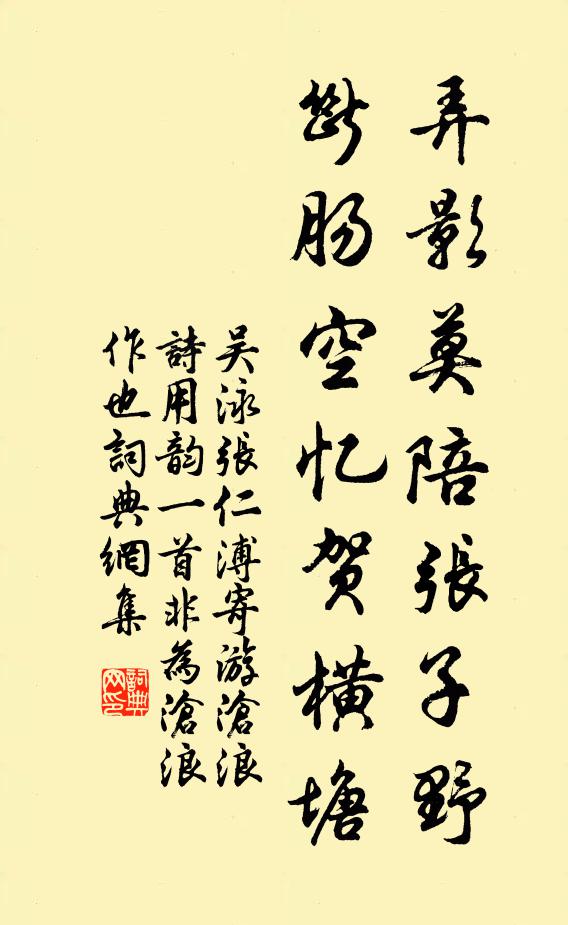 弄影莫陪張子野
斷肠空忆贺橫塘
吴泳張仁溥寄游滄浪
詩用韵一首非為滄浪
作也詞典網集
詞典
网印